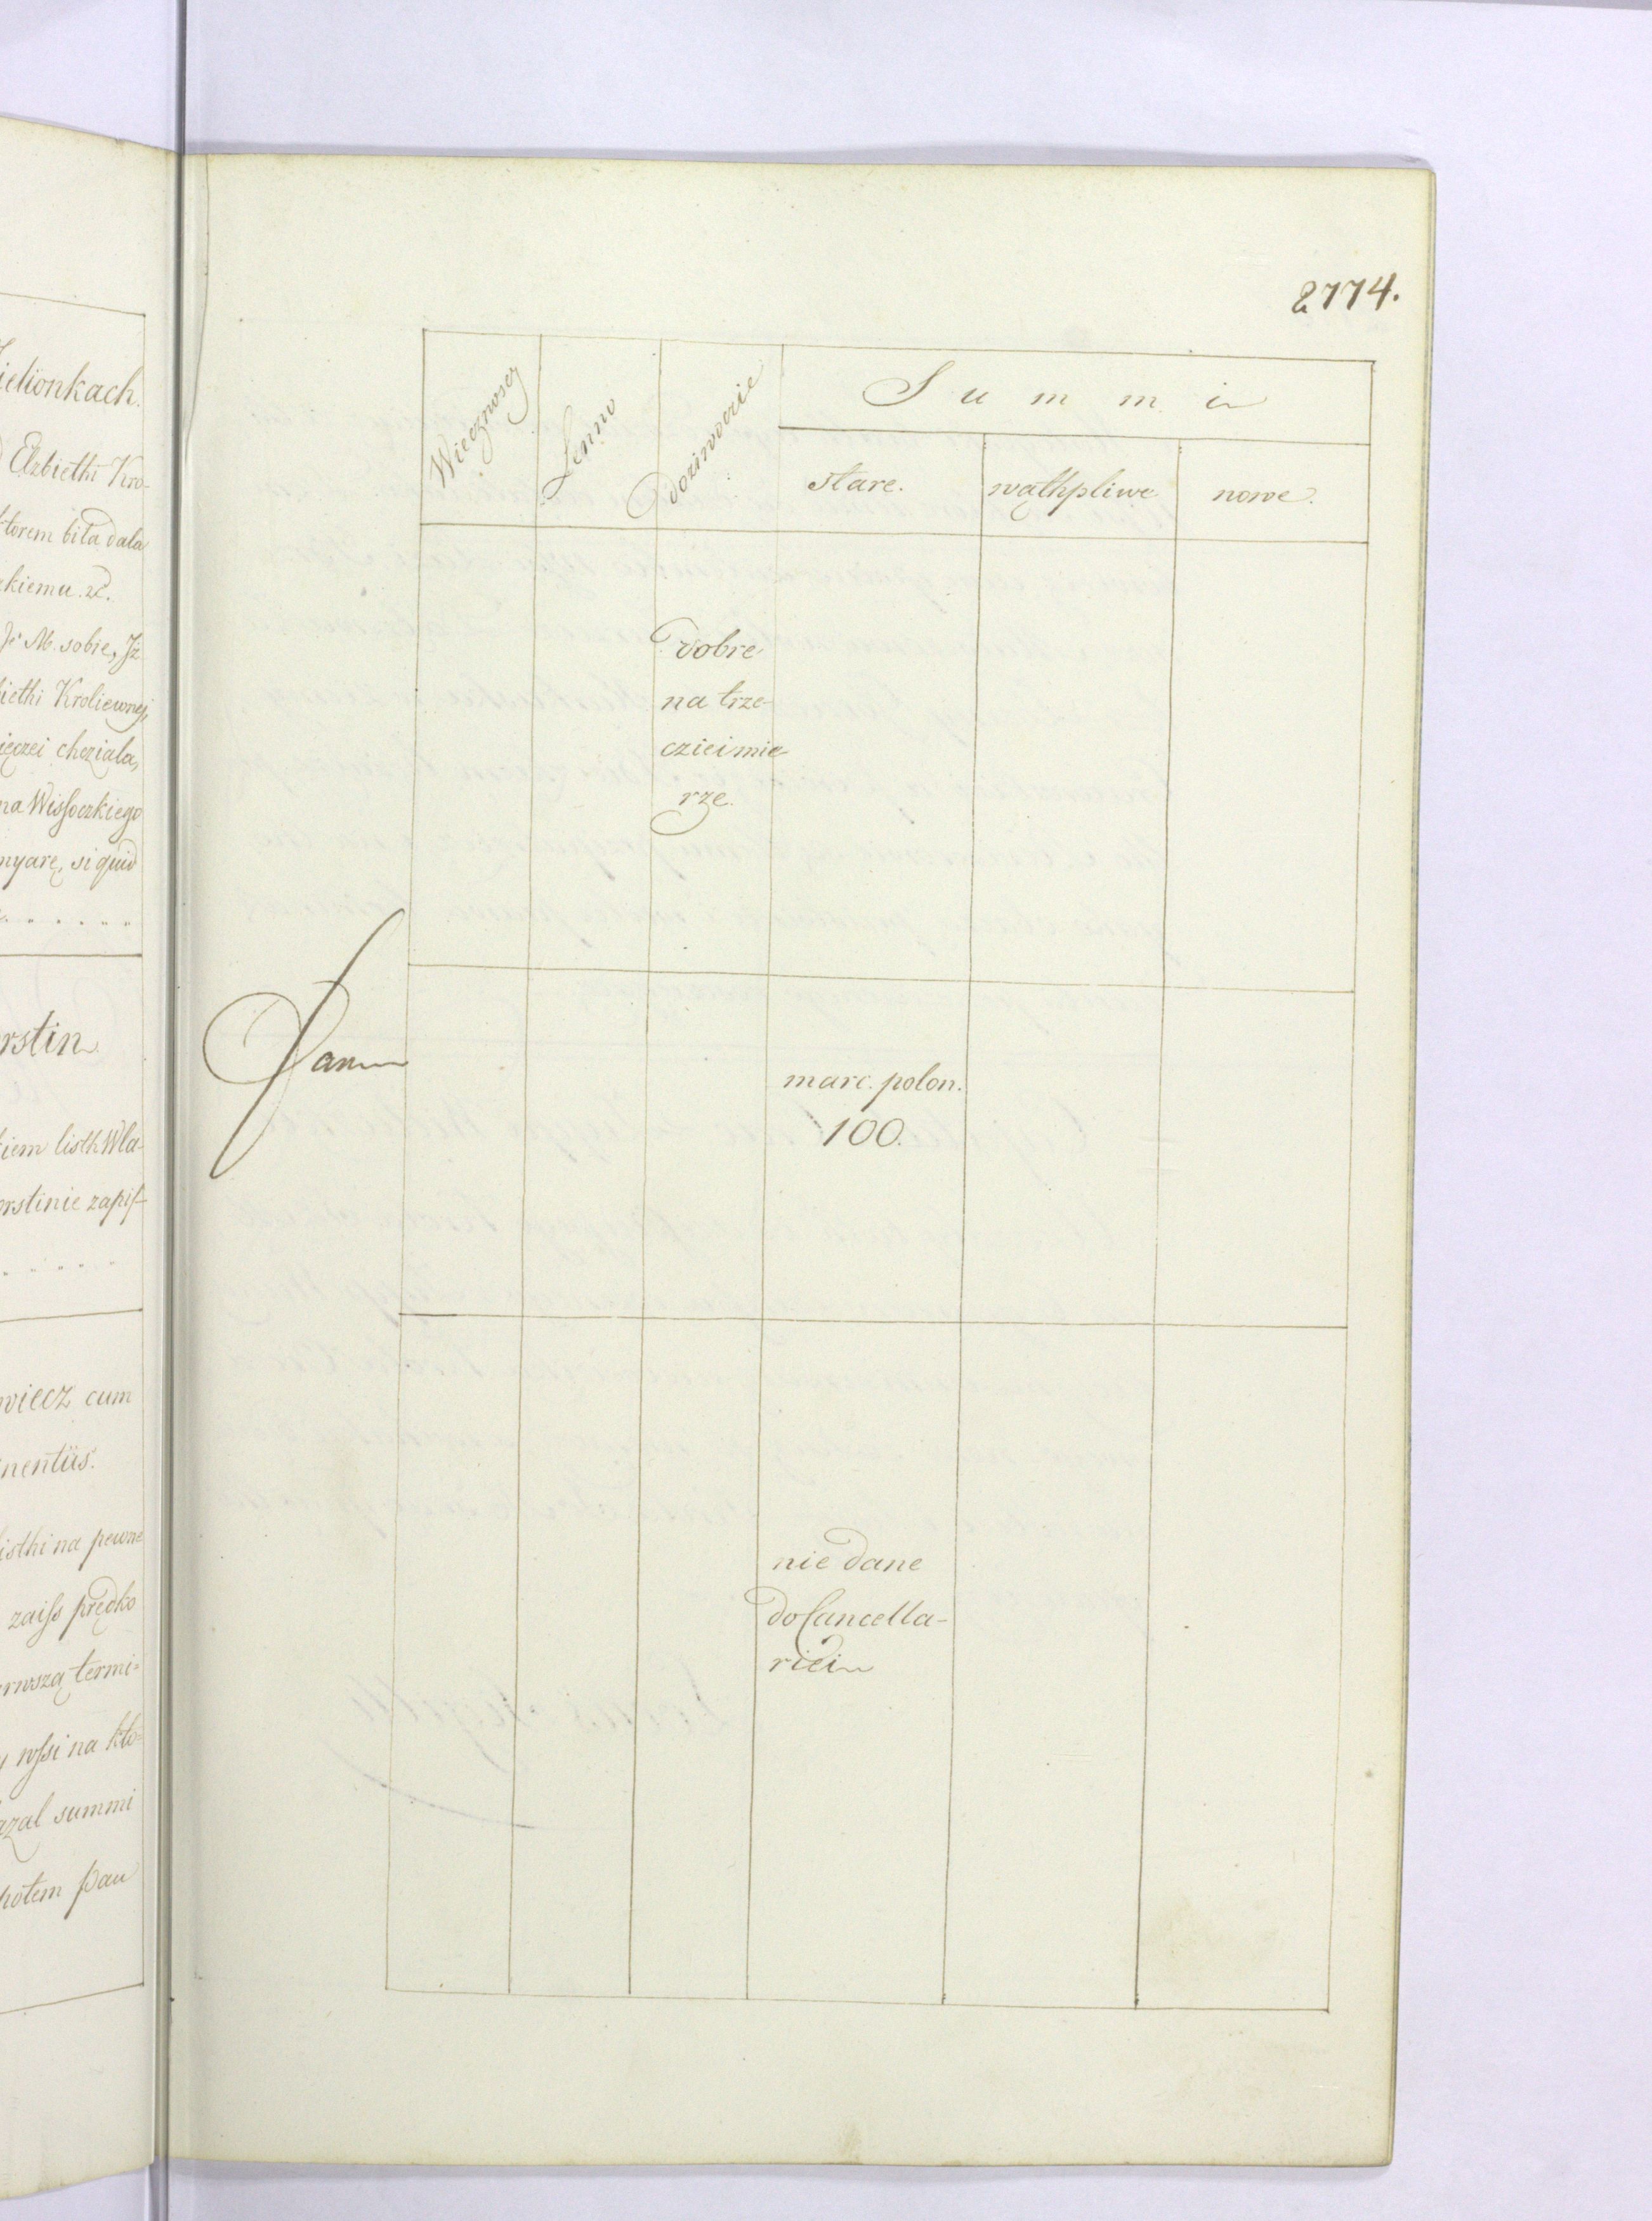 ielionkach.
Elzbiethi Kro-
ktorem bita dala
kiemu. etc.
Je° M. sobie, Jż
biethi Kroliewnej,
ięczei chcziala,
na Wissoczkiego
myarę, si quid
rstin
kiem listh Wla-
orstinie zapis-
wiecz cum
nentiis.
listhi na pewne
zaiss prędko
erwszą termi=
y wssi na kto=
azal summi
potem pan
2774.
Wiecznoscz
Lenno
doziwoczie
Summi
stare.
wąthpliwe
nowe.
dobre
na trze-
cziei mie-
rze.
marc. polon.
100.
nie dane
do Cancella-
riei